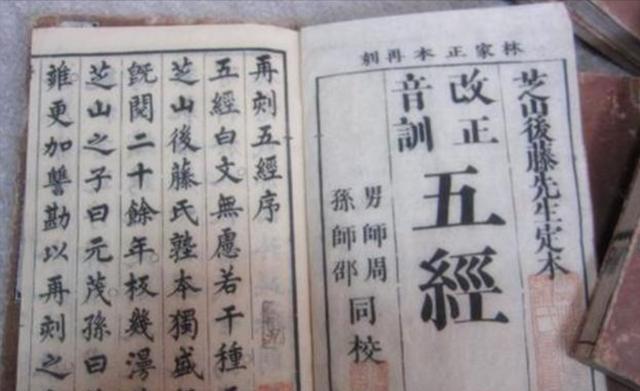 林家正本再刻
芝山後藤先生定本
改正
音訓
五經
男師周
孫師邵
同校
再刻五經序
五經白文無慮若干種
芝山後藤氏塾本獨盛
旣閱二十餘年板幾漫
芝山之子曰元茂孫曰
更加讐勘以再刻之